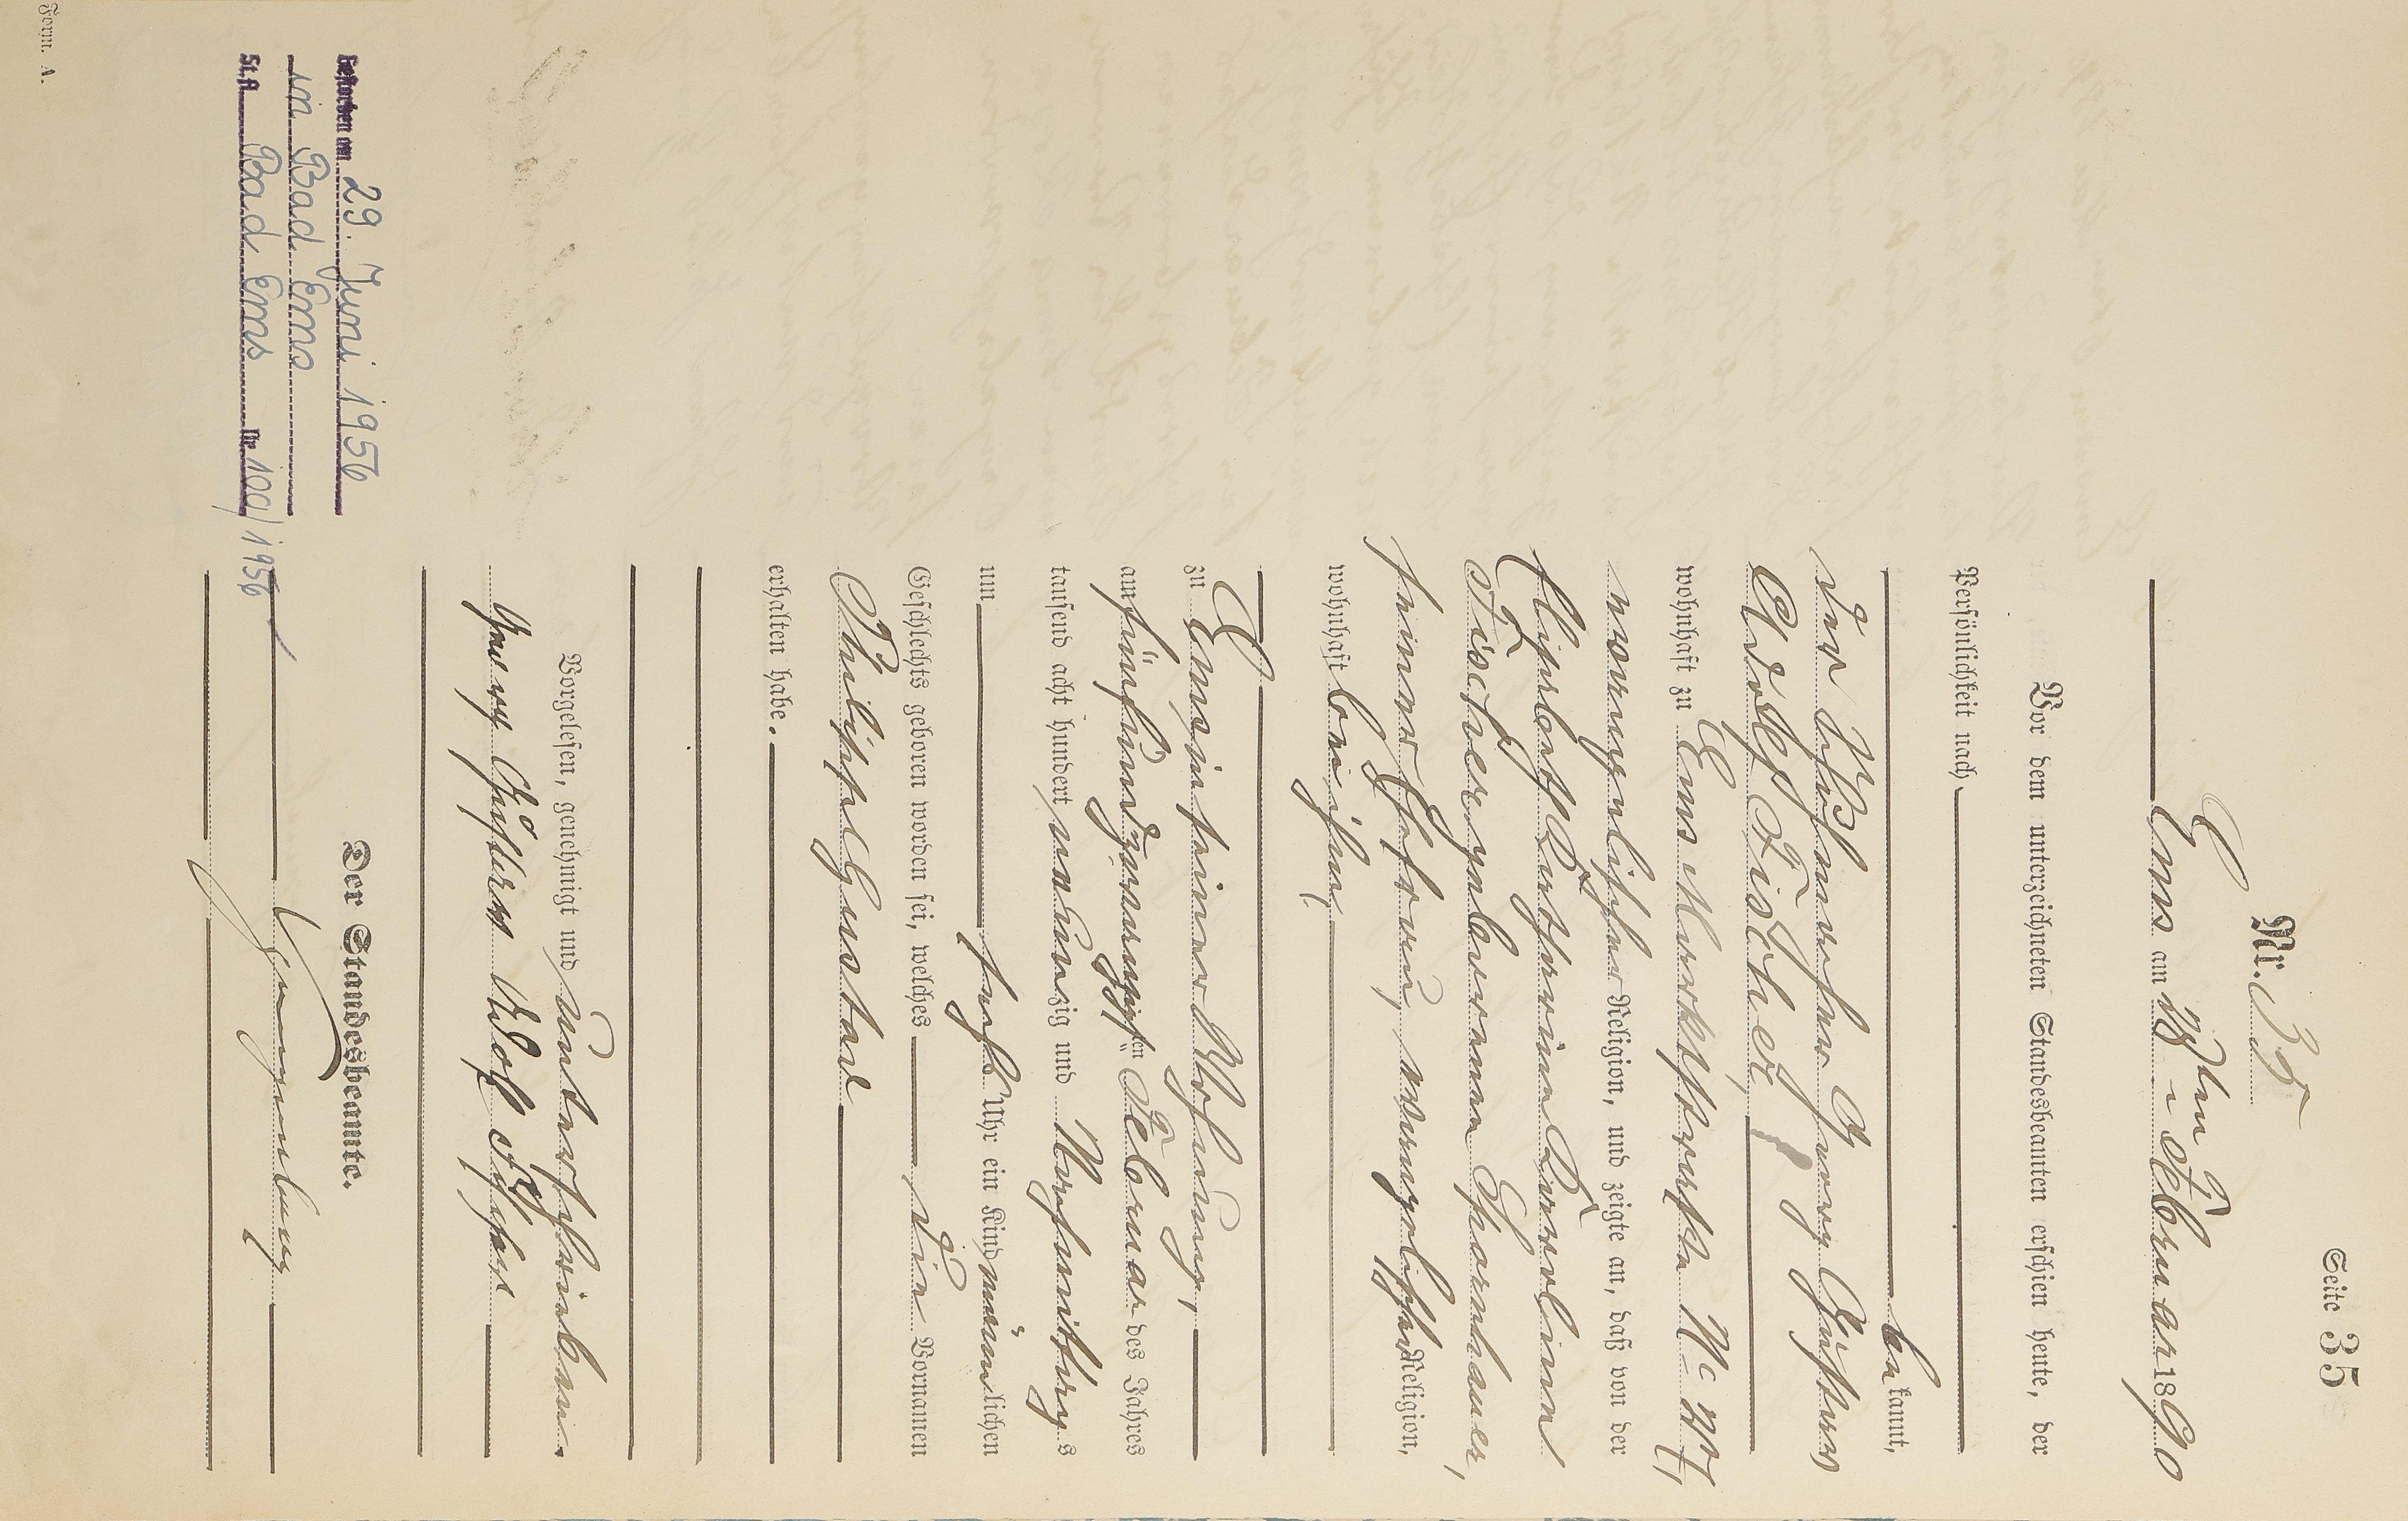 Seite 35
Nr. 35
Ems am ten Februar 1890
Vor dem unterzeichneten Standesbeamten erschien heute, der
Persönlichkeit nach
bekannt,
der Georg Gustav
Adolf Fischer,
wohnhaft zu Ems Marktstraße
evangelischer Religion, und zeigte an, daß von der
Elisabeth Katharina Karoline
Fischer geborenen Sparnhauer,
seiner Ehefrau, evangelischer Religion,
wohnhaft bei ihm,
zu Ems in seiner Wohnung,
am fünfundzwanzigsten Februar des Jahres
tausend acht hundert neunzig und Nachmittags
um sechs Uhr ein Kind männlichen
Geschlechts geboren worden sei, welches die Vornamen
Philipp Gustav
erhalten habe.
Vorgelesen, genehmigt und unterschrieben
Georg Gustav Adolf Fischer
Der Standesbeamte.
Gestorben am 29. Juni 1956
in Bad Ems
St.A. Bad Ems Nr. 100/1956
Form. A.